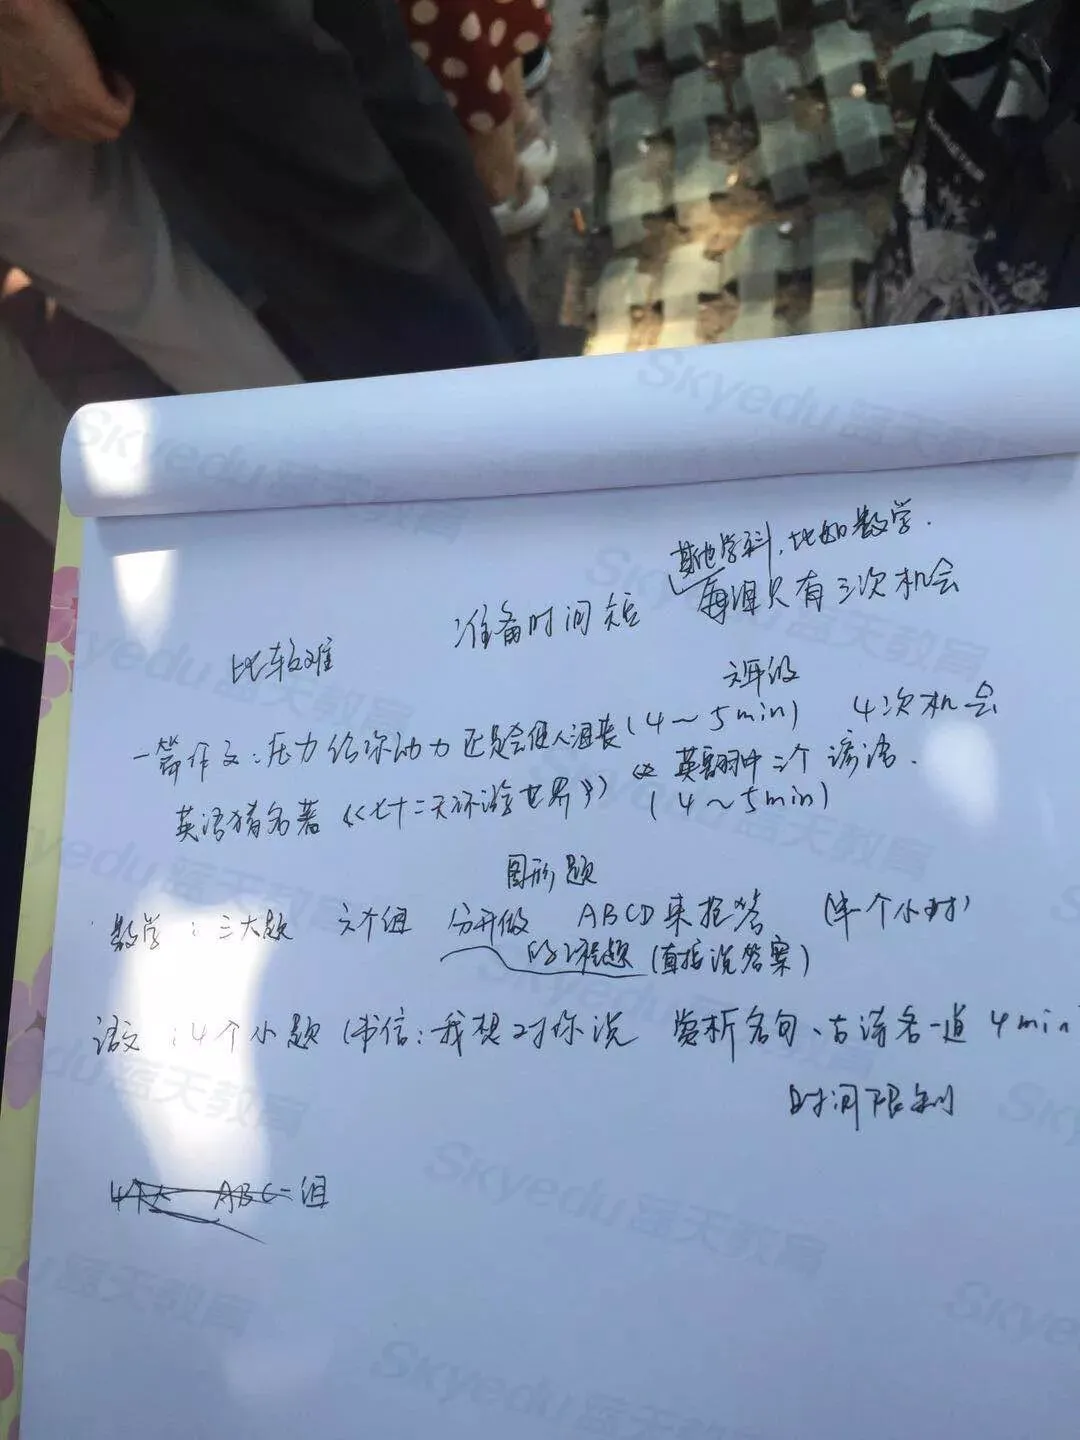 其他学科,比如数学.
每组只有三次机会
准备时间短
比较难
评级
一篇作文:压力给你动力还是会使人沮丧(4~5min) 4次机会
英语猜名著《七十二天环游世界》 英翻中三个谚语.
(4~5min)
图形题
数学:三大题 六个组 分开做 ABCD来抢答 (半个小时)
(直接说答案)
语文:4个小题(书信:我想对你说 赏析名句、古诗各一道 4min
时间限制
组
Skyedu蓝天教育